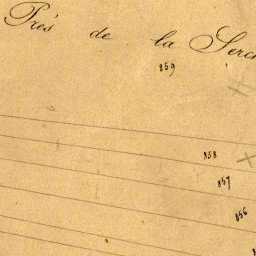 Prés de la
859
858
857
856